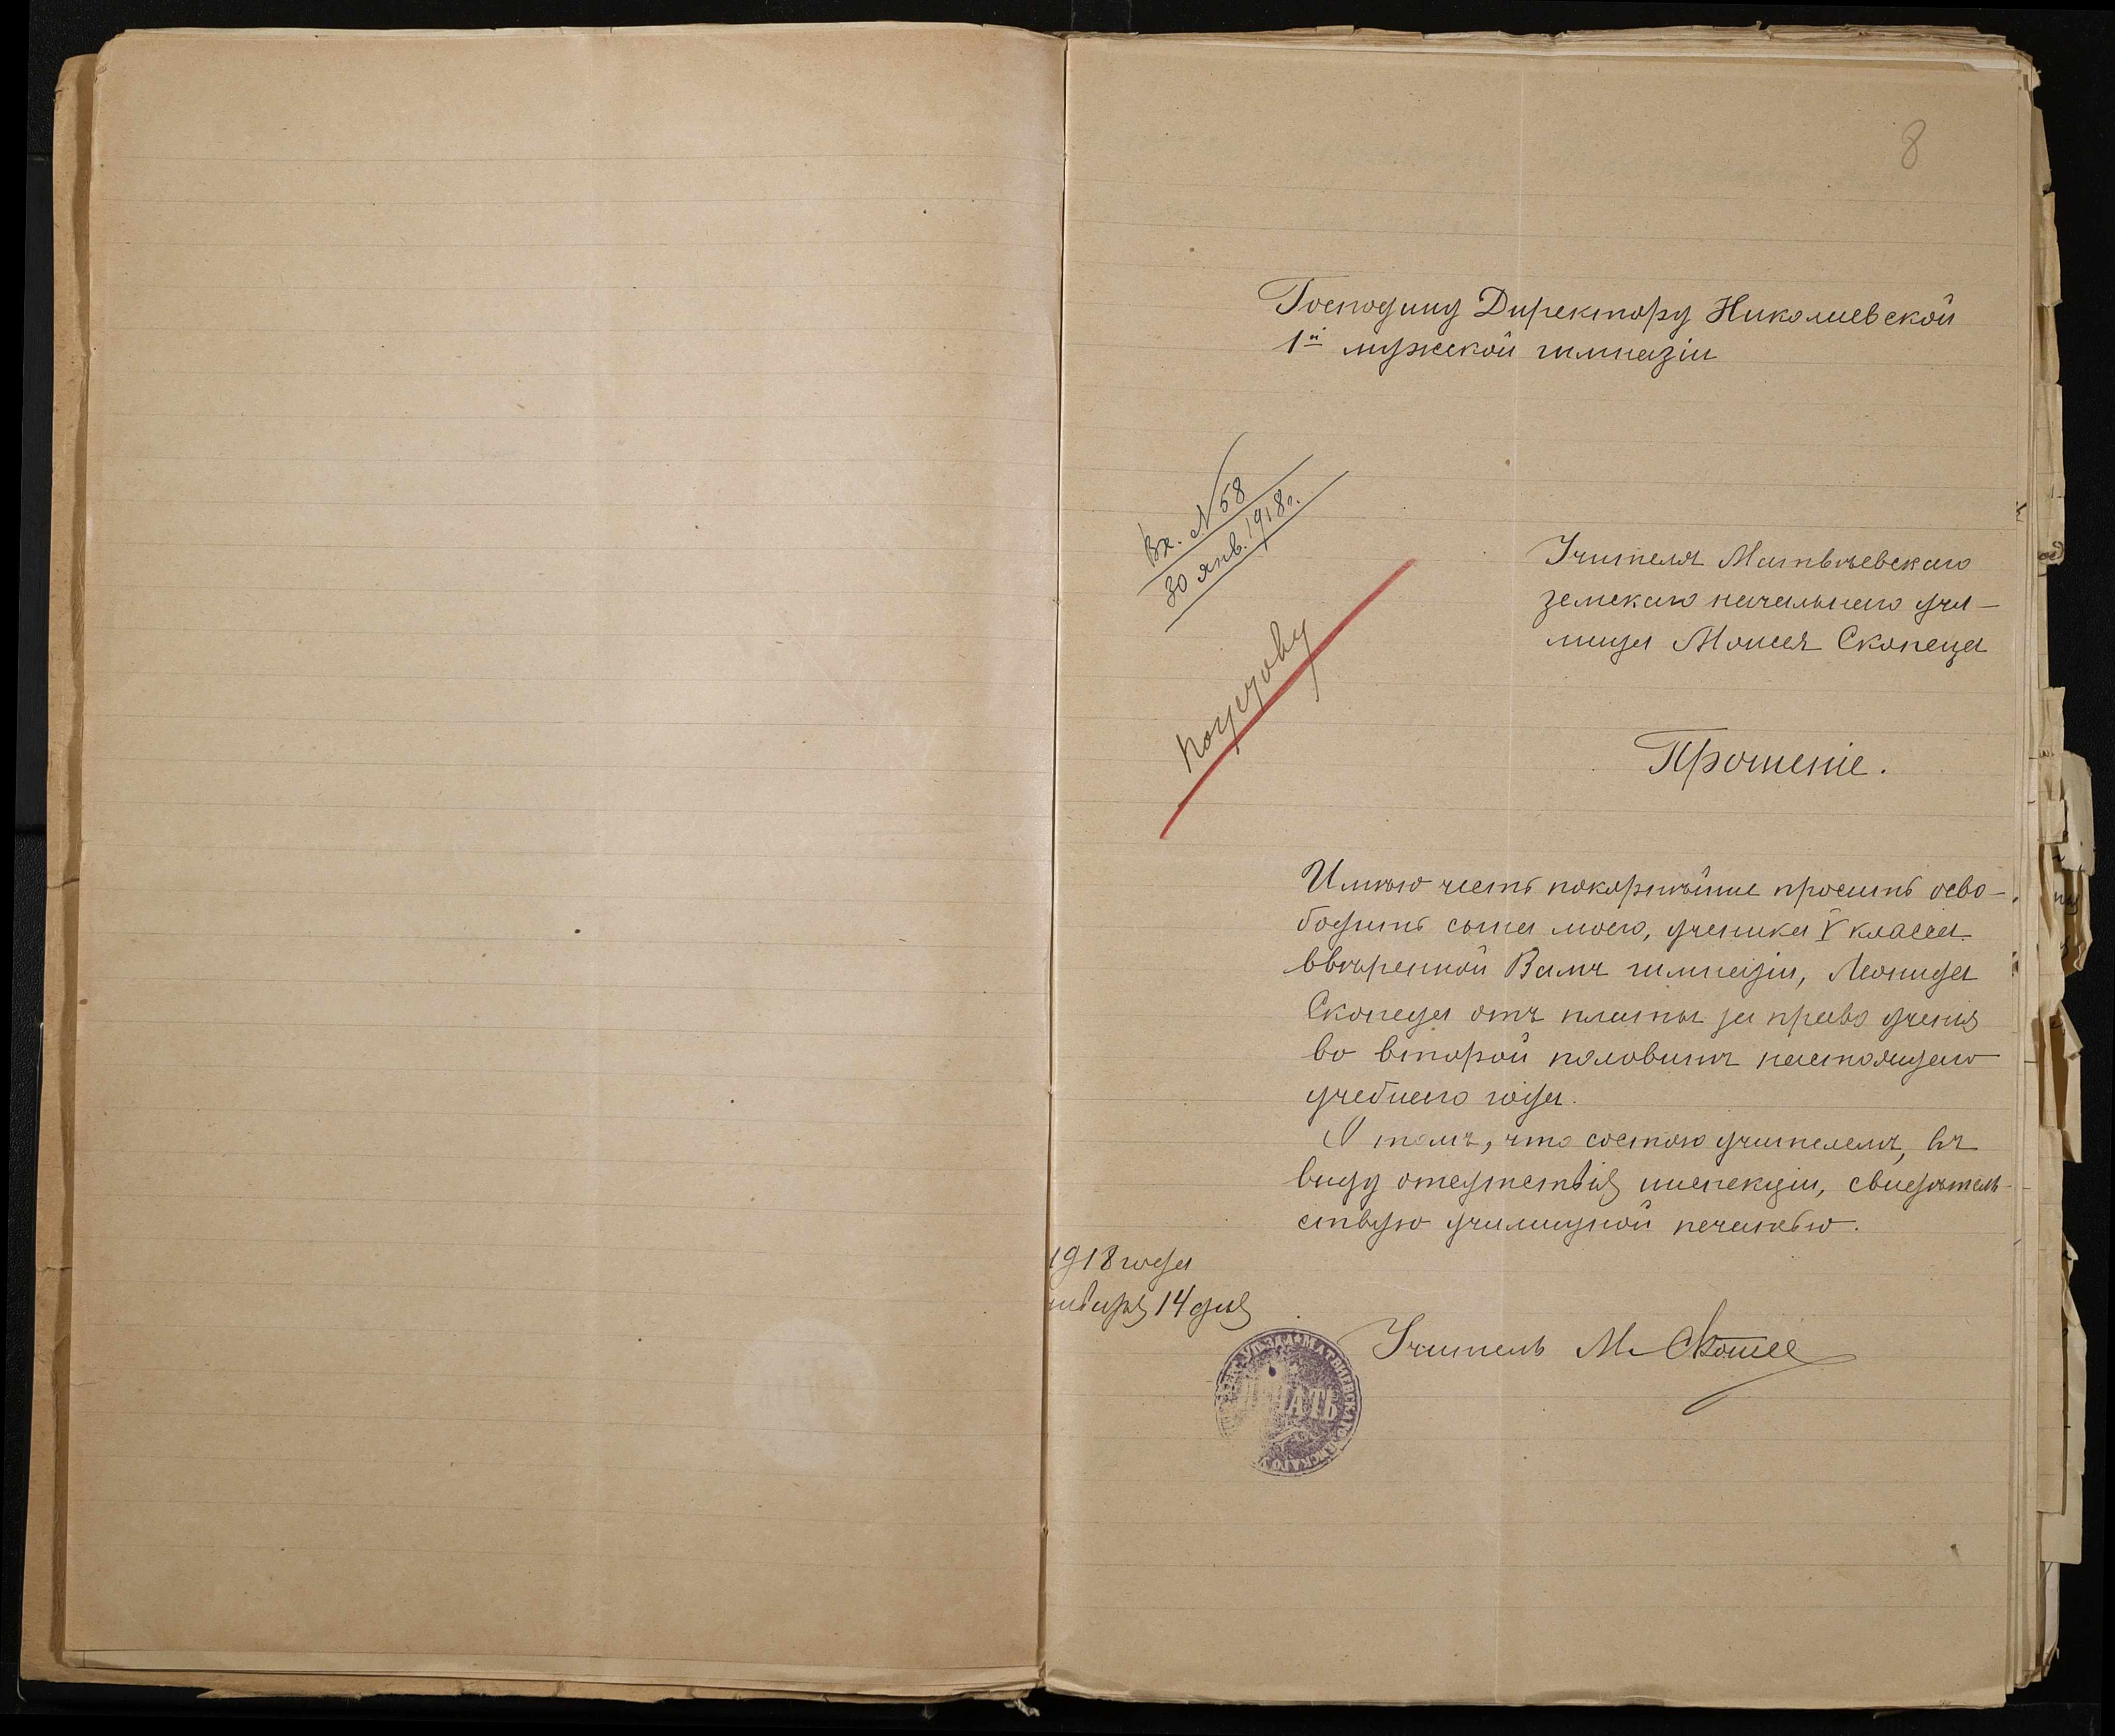 8
Господину Директору Николаевской
1й мужской гимназіи
Вх. № 58
30 янв. 1918 г.
Учителя Матвѣевскаго
земскаго начальнаго учи-
лища Моисея Скопеца
Прошеніе.
Имѣю честь покорнѣйше просить осво-
бодить сына моего, ученика V класса
ввѣренной Вамъ гимназіи, Леонида
Скопеца отъ платы за право ученія
во второй половинѣ настоящаго
учебнаго года.
О томъ, что состою учителемъ, въ
виду отсутствія инспекціи, свидѣтель-
ствую училищной печатью.
1918 года
января 14 дня
Учитель М. Скопец
УѢЗДА * МАТВѢЕВСКАГО ЗЕМСКАГО
ПЕЧАТЬ